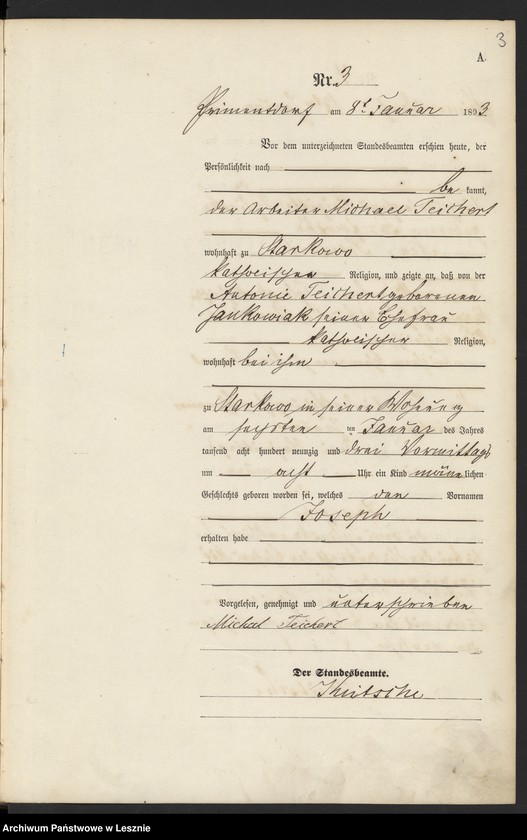 3
A.
Nr. 3
Primentdorf am 8t Januar 1893
Vor dem unterzeichneten Standesbeamten erschien heute, der
Persönlichkeit nach
be kannt,
der Arbeiter Michael Teichert
wohnhaft zu Starkowo
katholischer Religion, und zeigte an, daß von der
Antonie Teichert geborenen
Jankowiak seiner Ehefrau
katholischer Religion,
wohnhaft bei ihm
zu Starkowo in seiner Wohnung
am sechsten ten Januar des Jahres
tausend acht hundert neunzig und drei Vormittags
um acht Uhr ein Kind männlichen
Geschlechts geboren worden sei, welches den Vornamen
Joseph
erhalten habe
Vorgelesen, genehmigt und unterschrieben
Michal Teichert
Der Standesbeamte.
Archiwum Państwowe w Lesznie